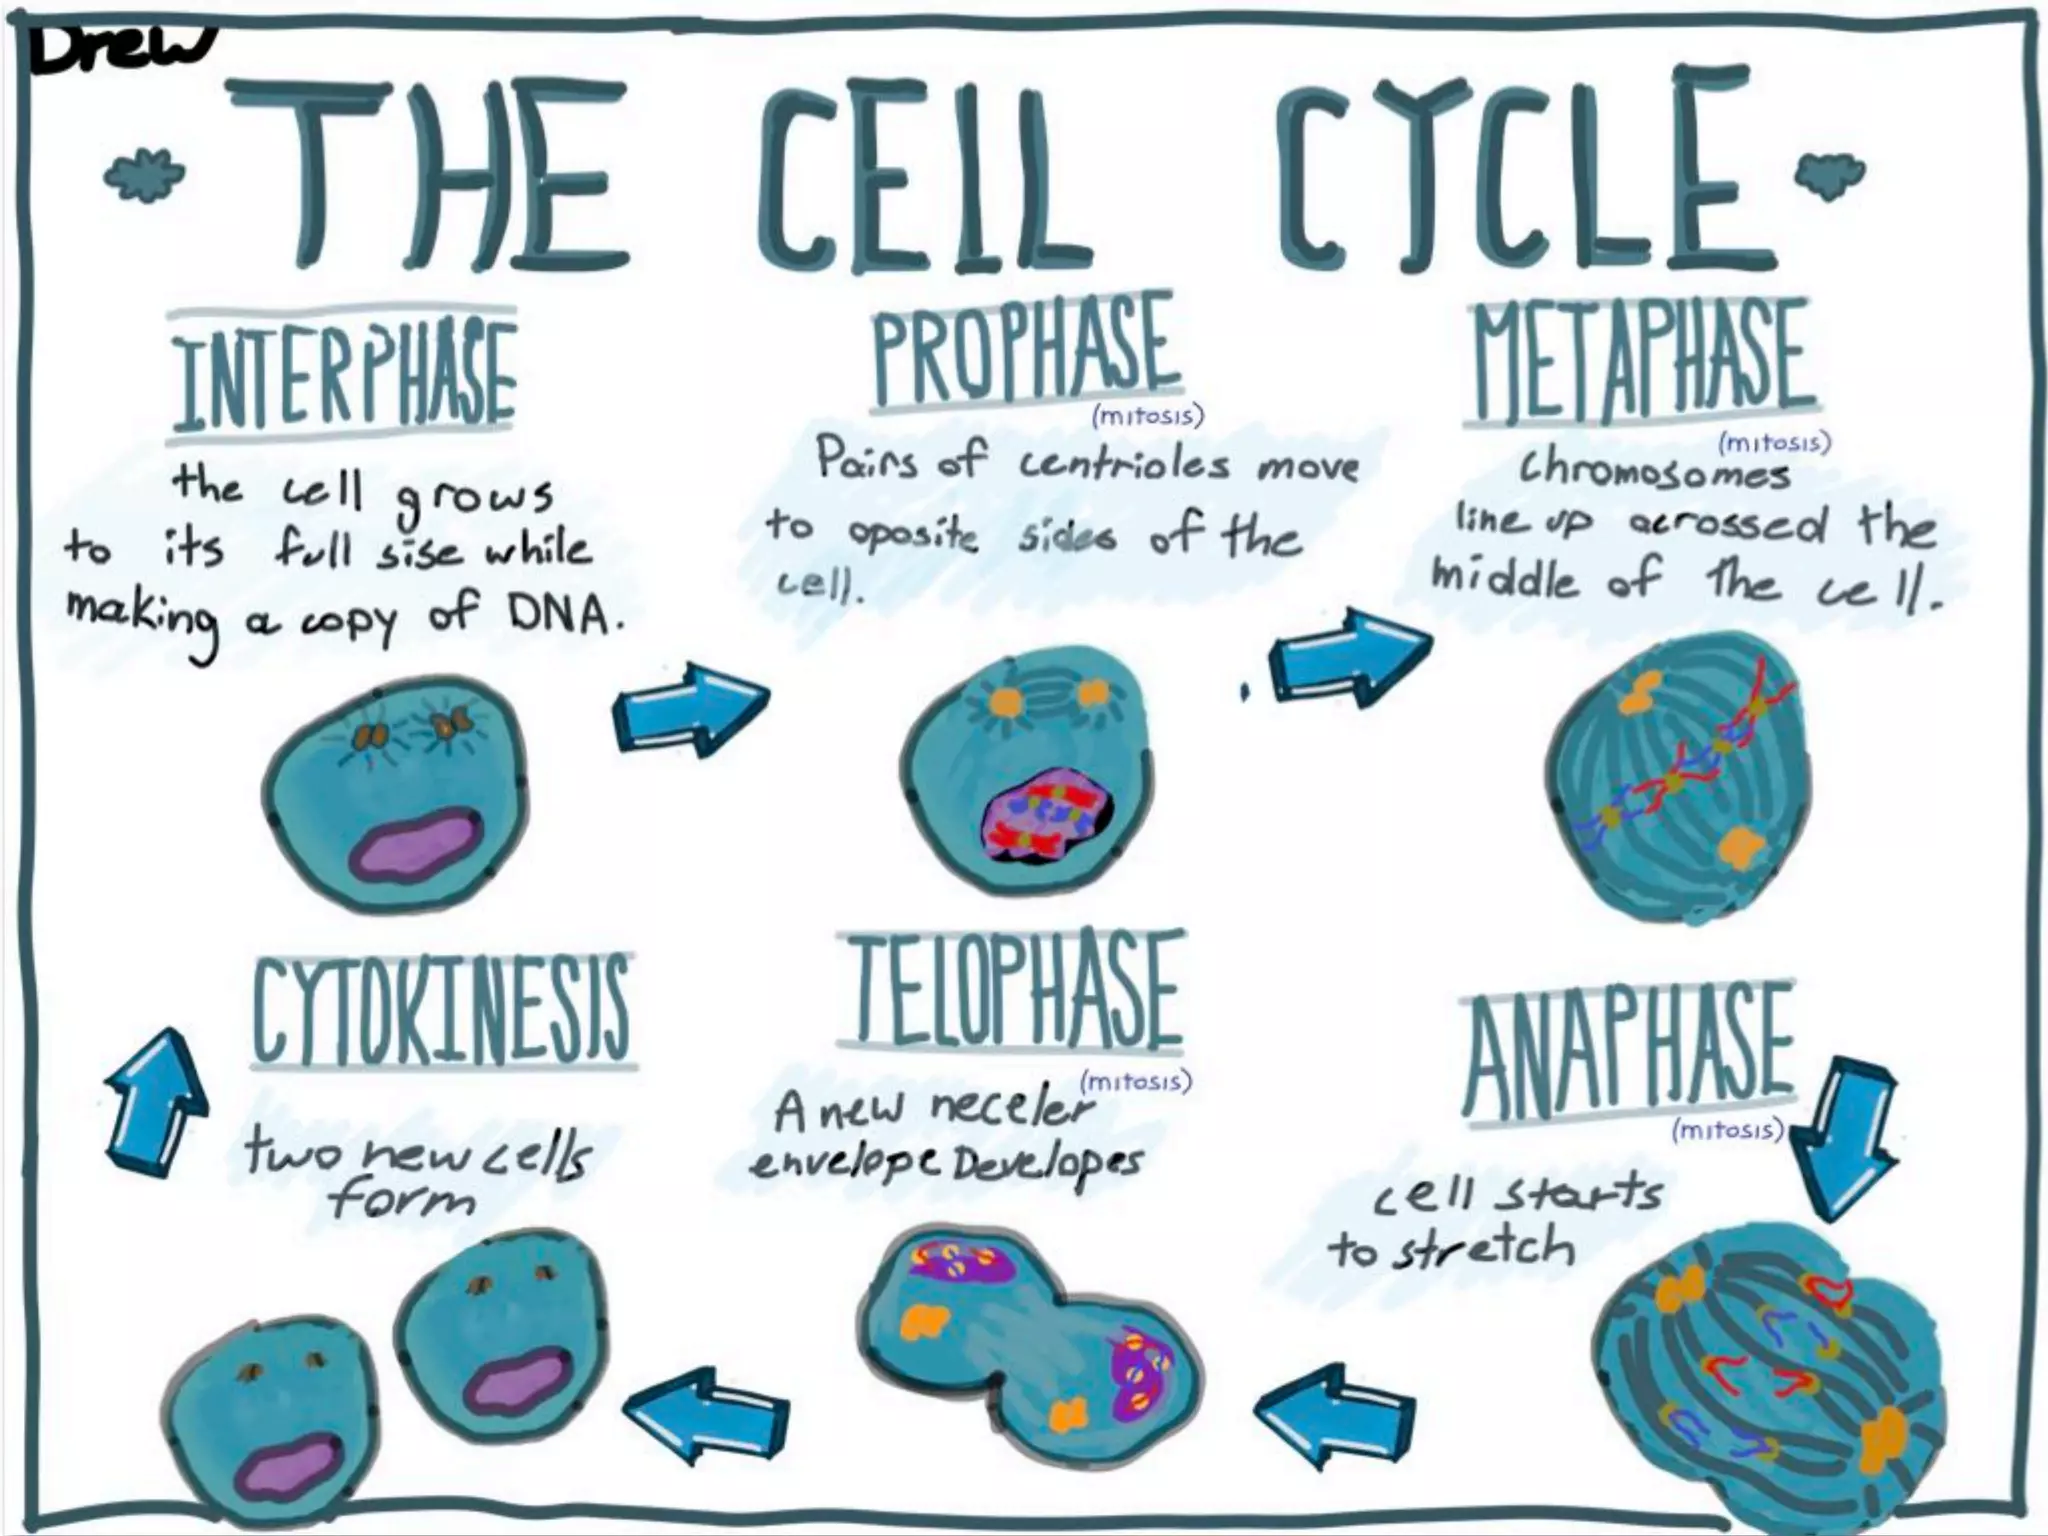 Drew
THE CEIL CYCLE
INTERPHASE
the cell grows
to its full sise while
making a copy of DNA.
PROPHASE
(mitosis)
Pairs of centrioles move
to oposite sides of the
cell.
METAPHASE
(mitosis)
Chromosomes
line up acrossed the
middle of the cell.
CYTOKINESIS
two new cells
form
TELOPHASE
(mitosis)
A new neceler
envelope Developes
ANAPHASE
(mitosis)
cell starts
to stretch